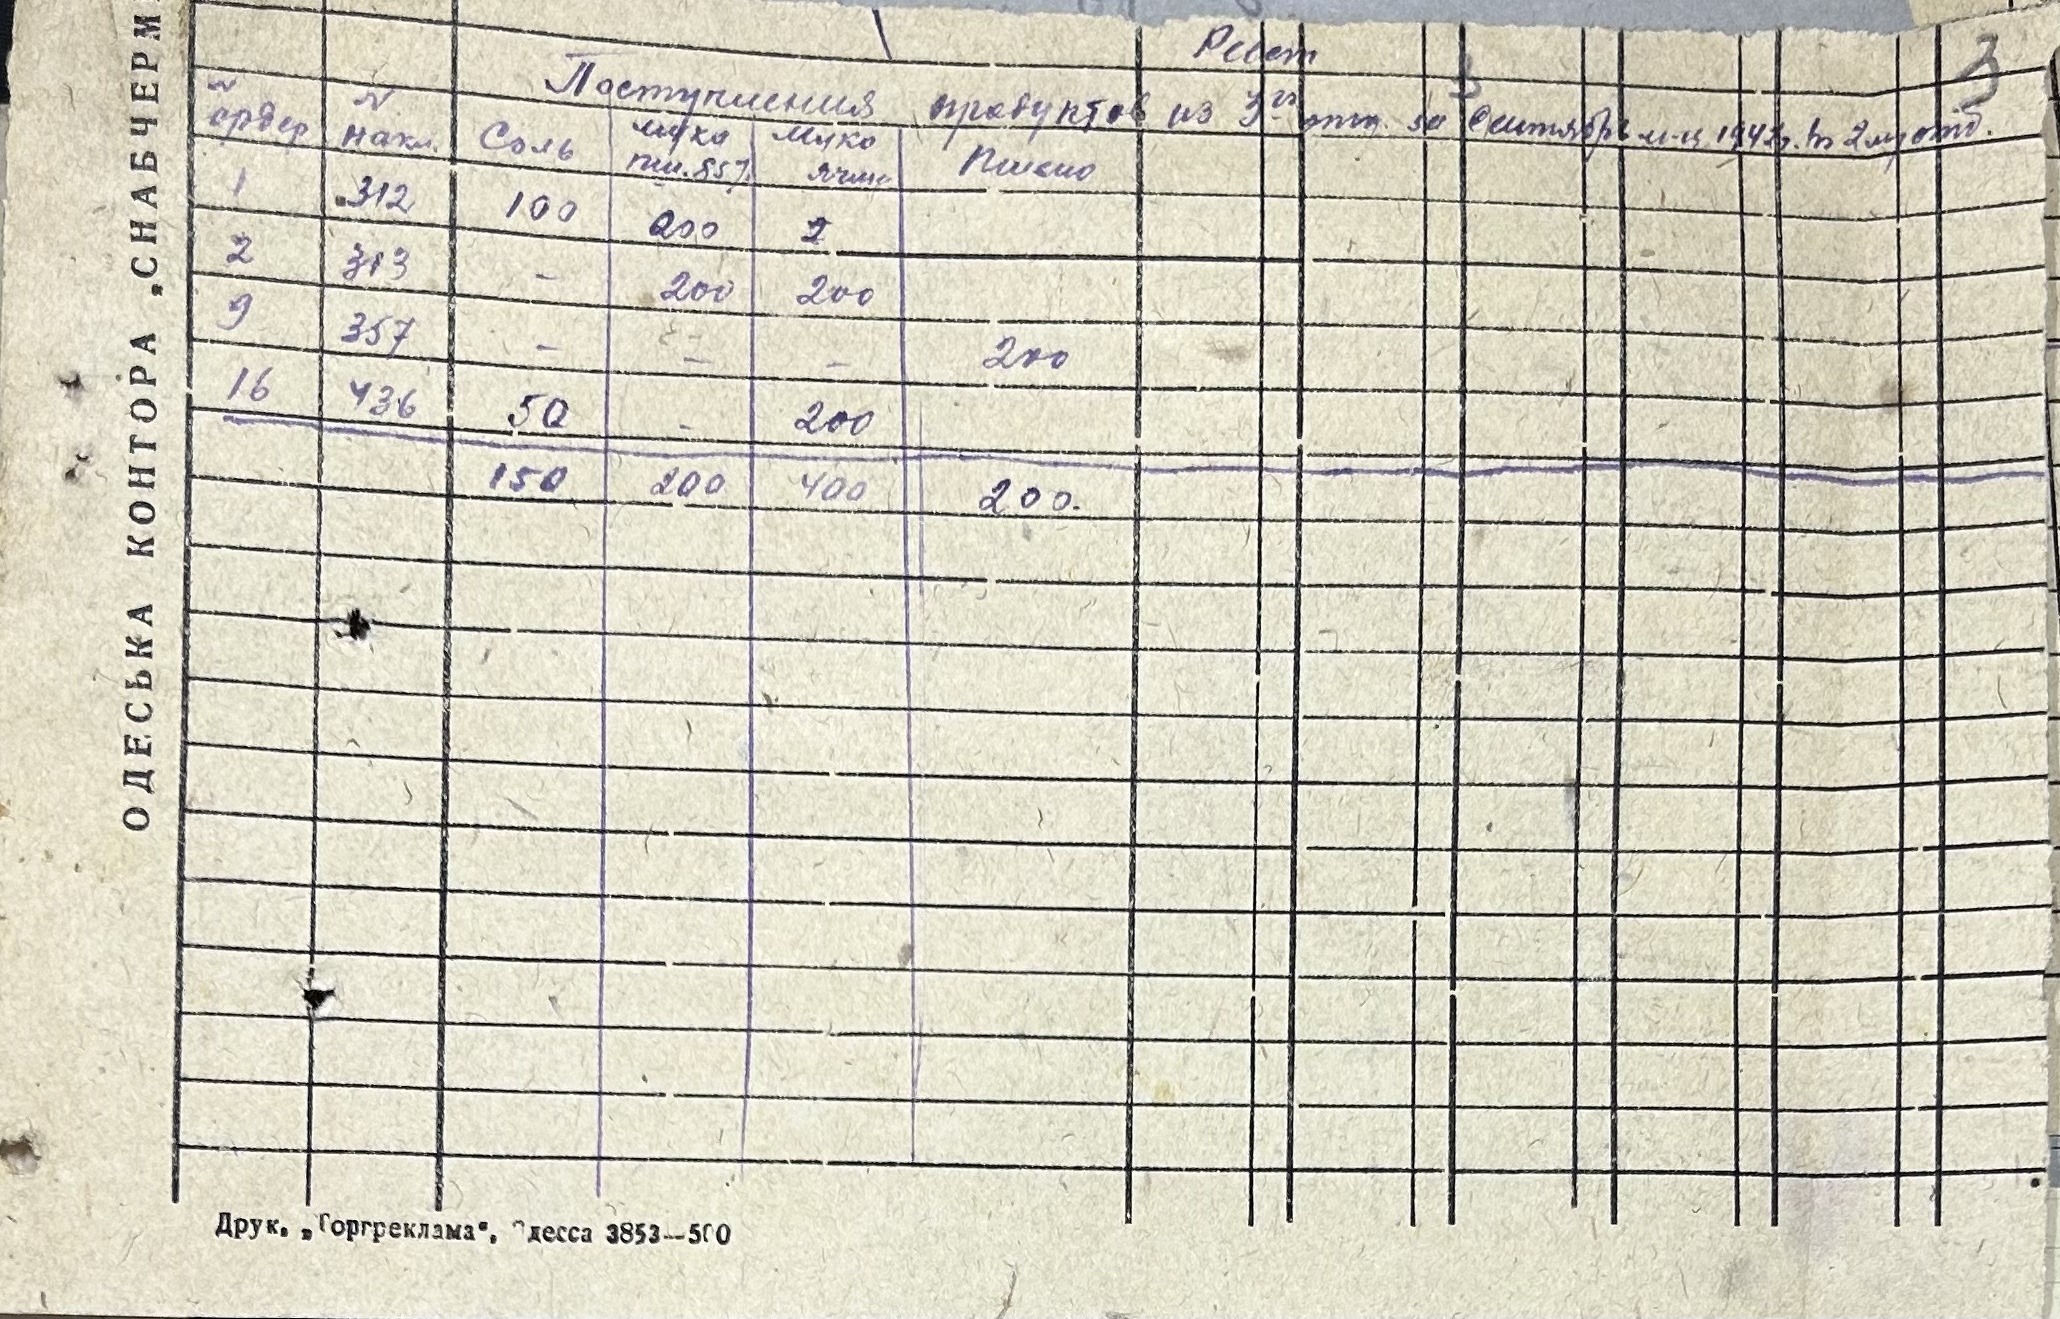 ОДЕСЬКА КОНТОРА „СНАБЧЕРМ
Реест
3
Поступления продуктов из 3го отд. за Сентябрь м-ц 1943г. во 2му отд.
№ ордер № накл. Соль Мука пш. 85% Мука ячм. Пшено
1 312 100 200 2
2 313 – 200 200
9 357 – – – 200
16 436 50 – 200
150 200 400 200.
Друк. „Торгреклама“, Одесса 3853—500